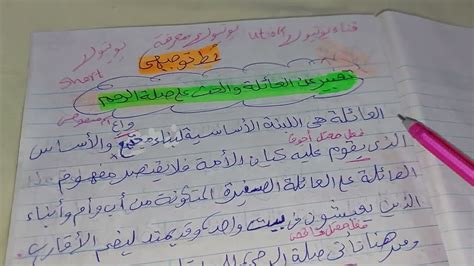 قناة يوتيولا utola يوتيولا معرفة يوتيولا
short
خط توجيهي
تعبير عن العائلة والحث على صلة الرحم
العائلة هي اللبنة الأساسية لبناء والأساس
فعل معتل أجوف
الذي يقوم عليه كيان الأمة فلا يقتصر مفهوم
العائلة على العائلة الصغيرة المتكونة من أب وأم وأبناء
الذين يعيشون في بيت واحد وقد يمتد ليضم الأقارب
ومن هنا تأتي صلة الرحم